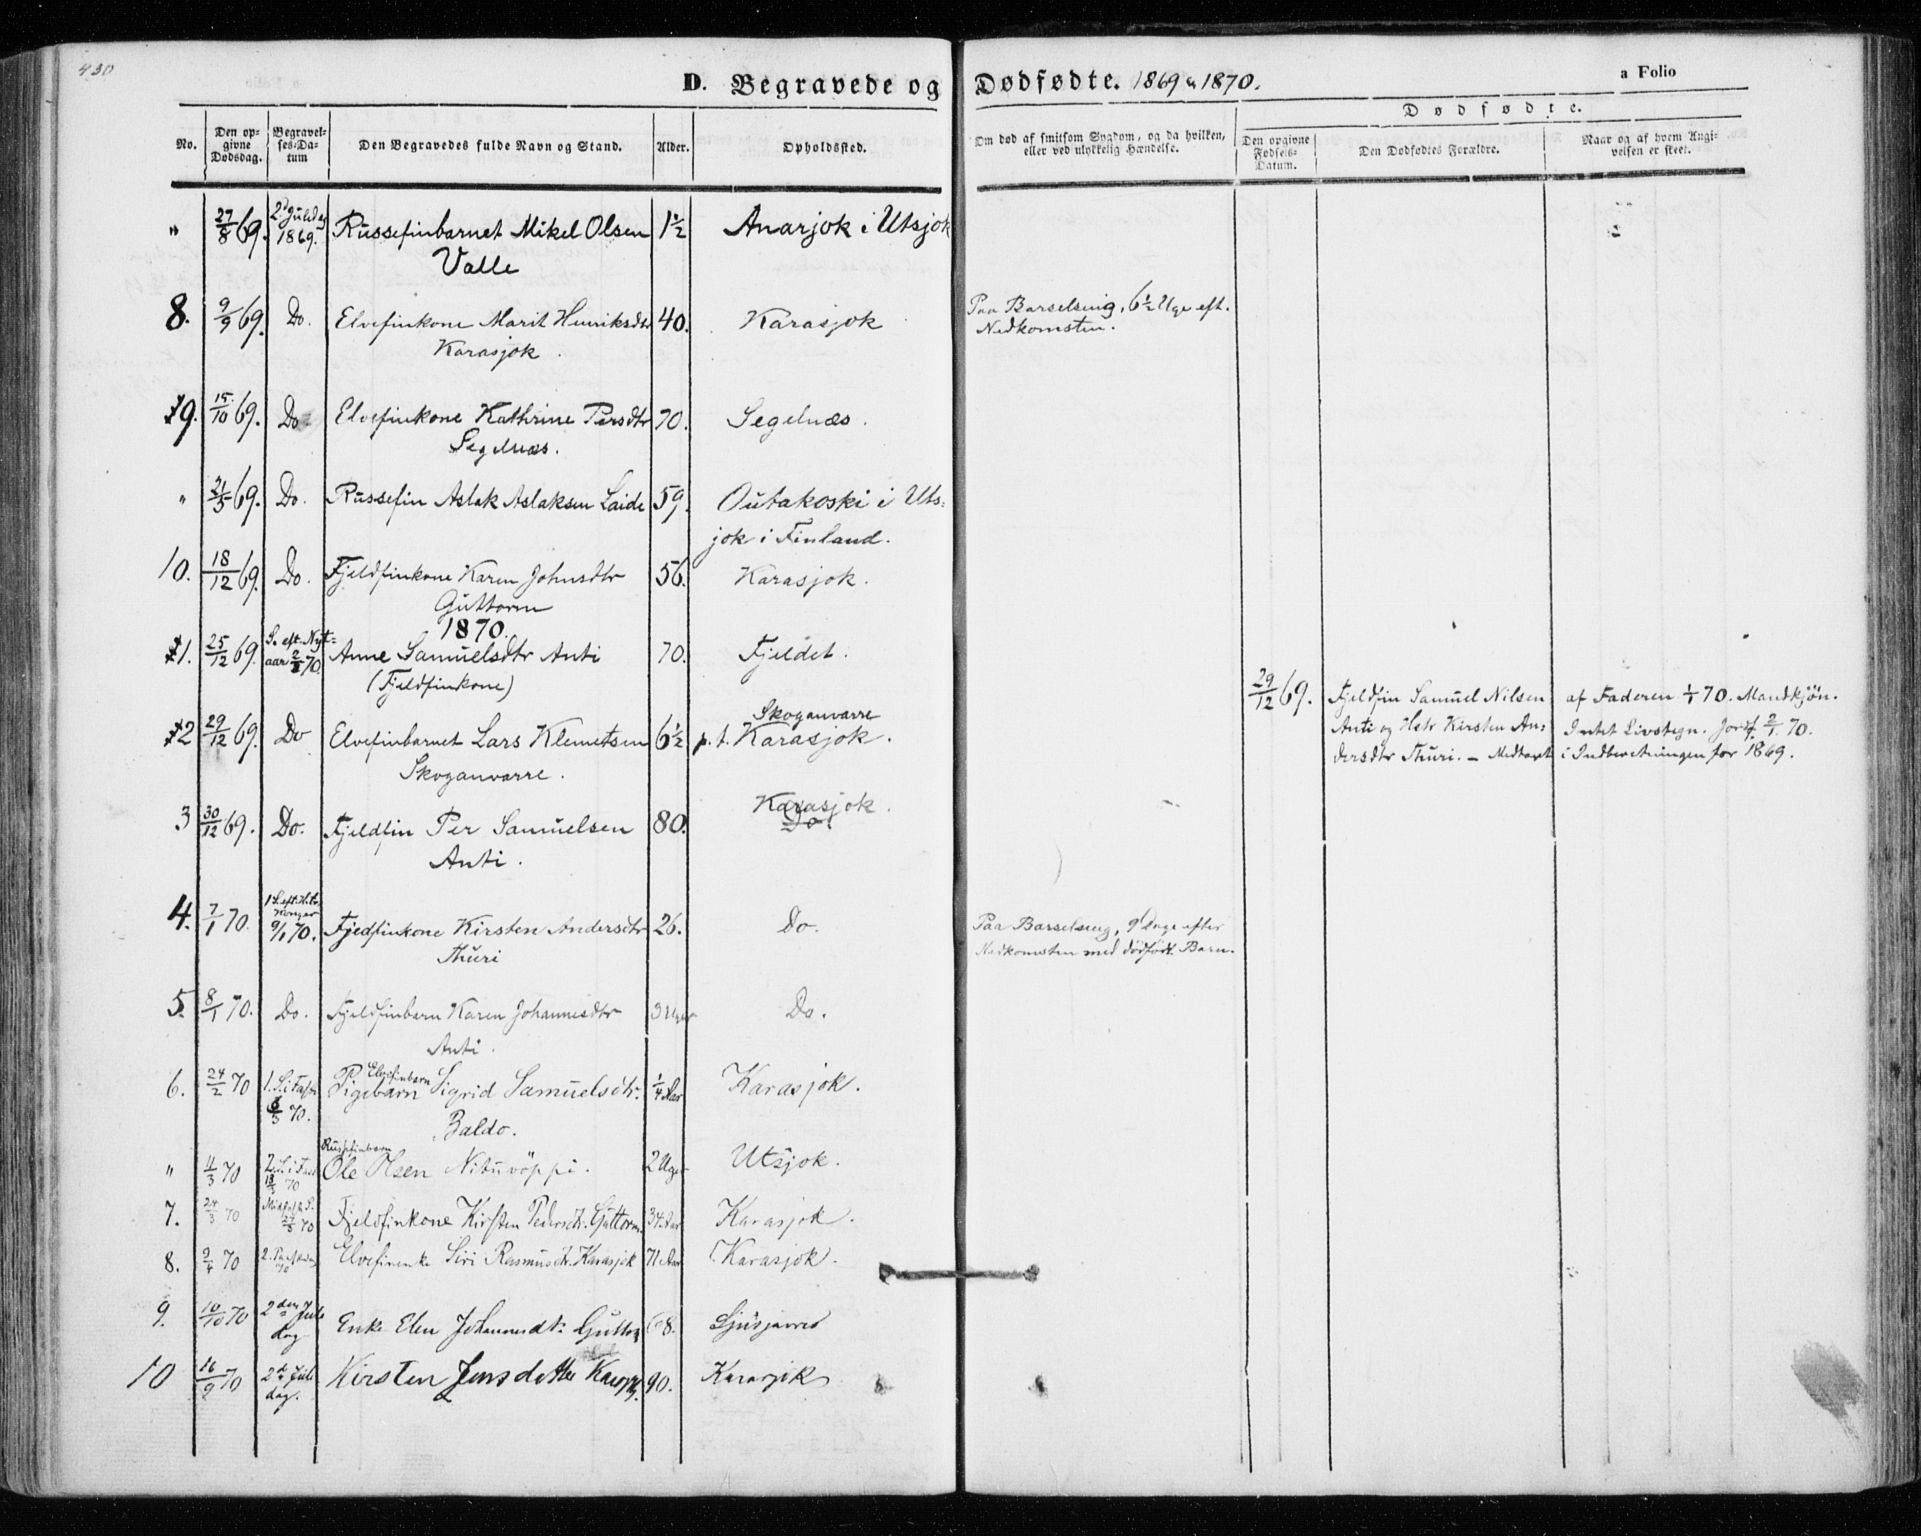 430
D. Begravede og Dødfødte. 1869 & 1870.
a Folio
No.
Den opgivne Dødsdag.
Begravelses-Datum
Den Begravedes fulde Navn og Stand.
Alder.
Opholdssted.
Om død af smitsom Sygdom, og da hvilken, eller ved ulykkelig Hændelse.
Dødfødte.
Den opgivne Fødsels-Datum.
Den Dødfødtes Forældre.
Naar og af hvem Angivelsen er skeet.
" 27/8 69. 2d Juledag 1869. Russefinbarnet Mikel Olsen 1 1/2 Anarjok i Utsjok
Valle
8. 9/9 69. Do. Elvefinkone Marit Henriksdtr 40. Karasjok Paa Barselseng, 6 1/2 Uge eft.
Karasjok. Nedkomsten.
9. 15/10 69. Do Elvefinkone Kathrine Persdtr 70. Segelnæs.
Segelnæs.
" 21/5 69. Do. Russefin Aslak Aslaksen Laide 59. Outakoski i Uts-
jok i Finland.
10. 18/12 69. Do. Fjeldfinkone Karen Johnsdtr 56. Karasjok.
Guttorm
1870.
1. 25/12 69. S. eft. Nyt-aar 2/1 70. Anne Samuelsdtr Anti 70. Fjeldet.
(Fjeldfinkone)
29/12 69. Fjeldfin Samuel Nilsen af Faderen 1/1 70. Mandkjøn.
Anti og Hstr Kirsten An- Intet Livstegn. Jordf. 2/1 70.
dersdtr Thuri. – Medtaget i Indberetningen for 1869.
Skoganvarre
2 29/12 69. Do Elvefinbarnet Lars Klemetsen 6 1/2 p.t. Karasjok.
Skoganvarre.
Karasjok.
3 30/12 69. Do. Fjeldfin Per Samuelsen 80. Do.
Anti.
4. 7/1 70. 1 S. eft. H. tr. Konger 9/1 70. Fjedfinkone Kirsten Andersdtr 26. Do. Paa Barselseng, 9 Dage efter
Thuri Nedkomsten med dödfödt Barn.
5. 8/1 70. Do. Fjeldfinbarn Karen Johannesdtr 3 Uger Do.
Anti.
Elvefinbarn
6. 24/2 70 1. S. i Faste 6/3 70. Pigebarn Sigrid Samuelsdtr. 1/4 Aar Karasjok.
Baldo.
Russefinbarn
" 4/3 70 2. S. i Fast 13/3 70 Ole Olsen Nituvöppi. 2 Uger Utsjok.
7. 24/3 70 Midfaste S. 27/3 70 Fjeldfinkone Kirsten Pedersdtr. Guttorm. 34 Aar Karasjok.
8. 2/4 70 2. Paaskedag 70 Elvefinenke Siri Rasmusdtr. Karasjok 71 Aar Karasjok.
9. 10/10 70 2den Jule dag Enke Elen Johannesdtr. Guttorm 68.
10 16/9 70 2d Jule dag. Kirsten Jensdatter 90. Karasjok